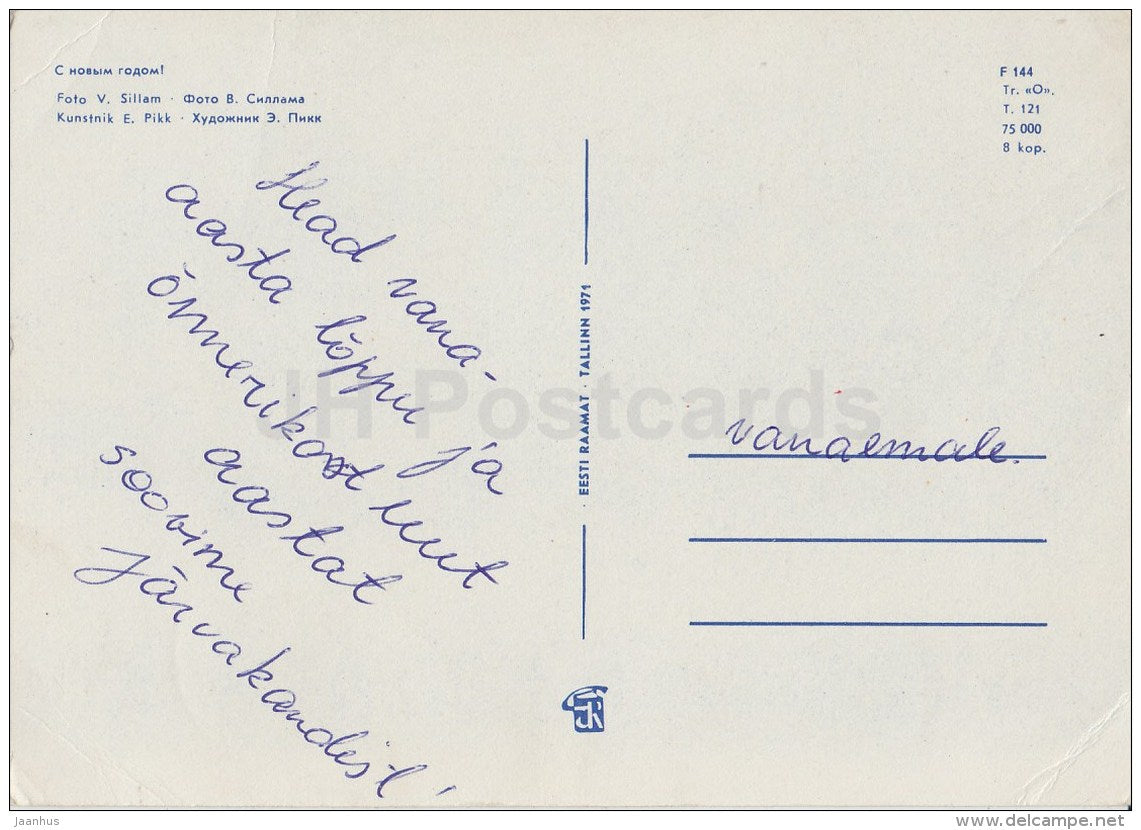 С новым годом!
Foto V. Sillam · Фото В. Силлама
Kunstnik E. Pikk · Художник Э. Пикк
F 144
Tr. «O».
T. 121
75 000
8 kop.
Head vana-
aasta lõppu ja
õnnerikast uut
aastat
soovime
Järvakandist!
· EESTI RAAMAT · TALLINN 1971
vanaemale.
JH Postcards
Jaanhus
www.delcampe.net